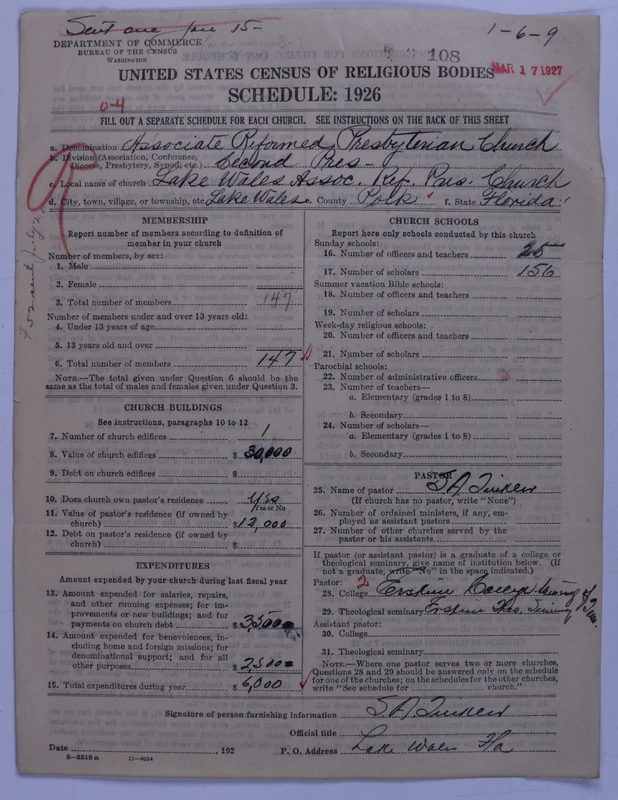 Sent one Jan 15-
1-6-9
DEPARTMENT OF COMMERCE
BUREAU OF THE CENSUS
WASHINGTON
108
MAR 17 1927
UNITED STATES CENSUS OF RELIGIOUS BODIES
SCHEDULE: 1926
0-4
FILL OUT A SEPARATE SCHEDULE FOR EACH CHURCH. SEE INSTRUCTIONS ON THE BACK OF THIS SHEET
a. Denomination Associate Reformed Presbyterian Church
b. Division (Association, Conference, Diocese, Presbytery, Synod, etc.) Second Pres-
c. Local name of church Lake Wales Assoc. Ref. Pres. Church
d. City, town, village, or township, etc. Lake Wales e. County Polk f. State Florida
MEMBERSHIP
Report number of members according to definition of
member in your church
Number of members, by sex:
1. Male
2. Female
3. Total number of members 147
Number of members under and over 13 years old:
4. Under 13 years of age
5. 13 years old and over
6. Total number of members 147
NOTE.—The total given under Question 6 should be the
same as the total of males and females given under Question 3.
CHURCH BUILDINGS
See instructions, paragraphs 10 to 12
7. Number of church edifices 1
8. Value of church edifices $ 30,000
9. Debt on church edifices $
10. Does church own pastor's residence Yes
Yes or No
11. Value of pastor's residence (if owned by
church) $ 12,000
12. Debt on pastor's residence (if owned by
church) $
EXPENDITURES
Amount expended by your church during last fiscal year
13. Amount expended for salaries, repairs,
and other running expenses; for im-
provements or new buildings; and for
payments on church debt $ 3,500
14. Amount expended for benevolences, in-
cluding home and foreign missions; for
denominational support; and for all
other purposes $ 2,500
15. Total expenditures during year $ 6,000
CHURCH SCHOOLS
Report here only schools conducted by this church
Sunday schools:
16. Number of officers and teachers 25
17. Number of scholars 156
Summer vacation Bible schools:
18. Number of officers and teachers
19. Number of scholars
Week-day religious schools:
20. Number of officers and teachers
21. Number of scholars
Parochial schools:
22. Number of administrative officers
23. Number of teachers—
a. Elementary (grades 1 to 8)
b. Secondary
24. Number of scholars—
a. Elementary (grades 1 to 8)
b. Secondary
PASTOR
25. Name of pastor S. A.
(If church has no pastor, write "None")
26. Number of ordained ministers, if any, em-
ployed as assistant pastors
27. Number of other churches served by the
pastor or his assistants
If pastor (or assistant pastor) is a graduate of a college or
theological seminary, give name of institution below. (If
not a graduate, write "No" in the space indicated.)
Pastor: 2
28. College Erskine
29. Theological seminary Erskine
Assistant pastor:
30. College
31. Theological seminary
NOTE.—Where one pastor serves two or more churches,
Questions 28 and 29 should be answered only on the schedule
for one of the churches; on the schedules for the other churches,
write "See schedule for church."
Signature of person furnishing information S. A.
Official title
Date , 192 P. O. Address Lake Wales Fla
8-8518 a 11-9034